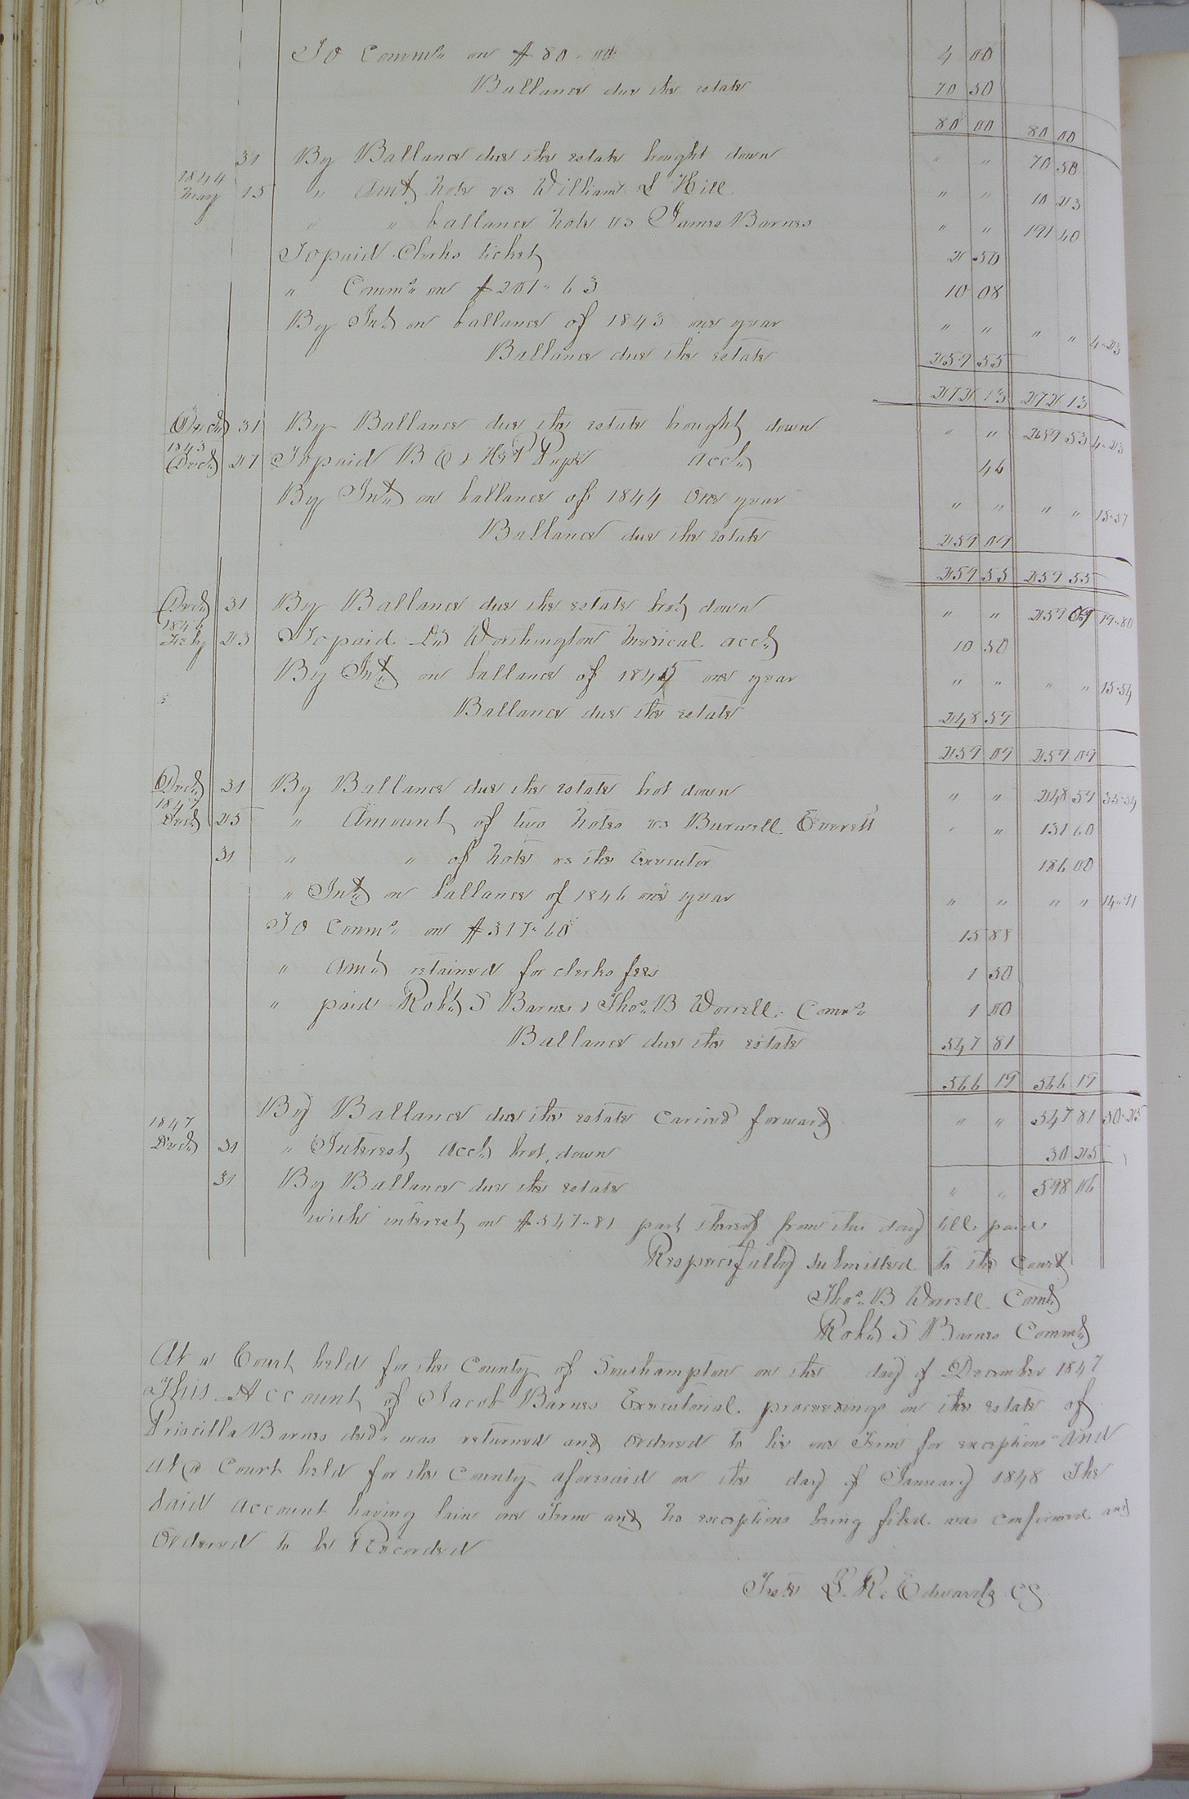 To Comms. on $80.00 4 00
Ballance due the estate 70 50
80 00 80 00
31 By Ballance due the estate bought down " " 70 50
1844 May 15 " Amt. note vs William S Hill " " 10 23
" " ballance note vs James Barnes " " 191 40
To paid Clerks ticket 2 50
" Comms. on $201.63 10 08
By Int. on ballance of 1843 one year " " " " 4.23
Ballance due the estate 259 55
272 13 272 13
Decr. 31 By Ballance due the estate brought down " " 259 55 4.23
1845 Decr. 27 To paid acct. 46
By Int. on ballance of 1844 One year " " " " 15.57
Ballance due the estate 259 09
259 55 259 55
Decr. 31 By Ballance due the estate brot. down " " 259 09 19.80
1846 Feby 23 To paid Dr. Worthington medical acct. 10 50
By Int. on ballance of 1845 one year " " " " 15.54
Ballance due the estate 248 59
259 09 259 09
Decr. 31 By Ballance due the estate brot down " " 248 59 35.34
1847 Decr. 25 " Amount of two notes vs Burwell Everett " " 131 60
31 " " of note vs the Executor 186 00
" Int. on ballance of 1846 one year " " " " 14.91
To Comms. on $317.60 15 88
" Amt. retained for clerks fees 1 50
" paid Robt. S Barnes & Thos. B Worrell Comrs. 1 00
Ballance due the estate 547 81
566 19 566 19
By Ballance due the estate caried forward " " 547 81 50.25
1847 Decr. 31 " Interest acct. brot. down 50 25
31 By Ballance due the estate " " 598 06
with interest on $547.81 part thereof from this day till paid
Respectfully submitted to the Court
Thos. B Worrell Comr.
Robt. S Barnes Commr.
At a Court held for the County of Southampton on the day of December 1847
This Account of Jacob Barnes Executorial proceedings on the estate of
Priscilla Barnes decd. was returned and ordered to lie one Term for exceptions And
at a Court held for the County aforesaid on the day of January 1848 The
said account having lain one Term and no exceptions being filed was confirmed and
Ordered to be Recorded
Teste L. R. Edwards CC